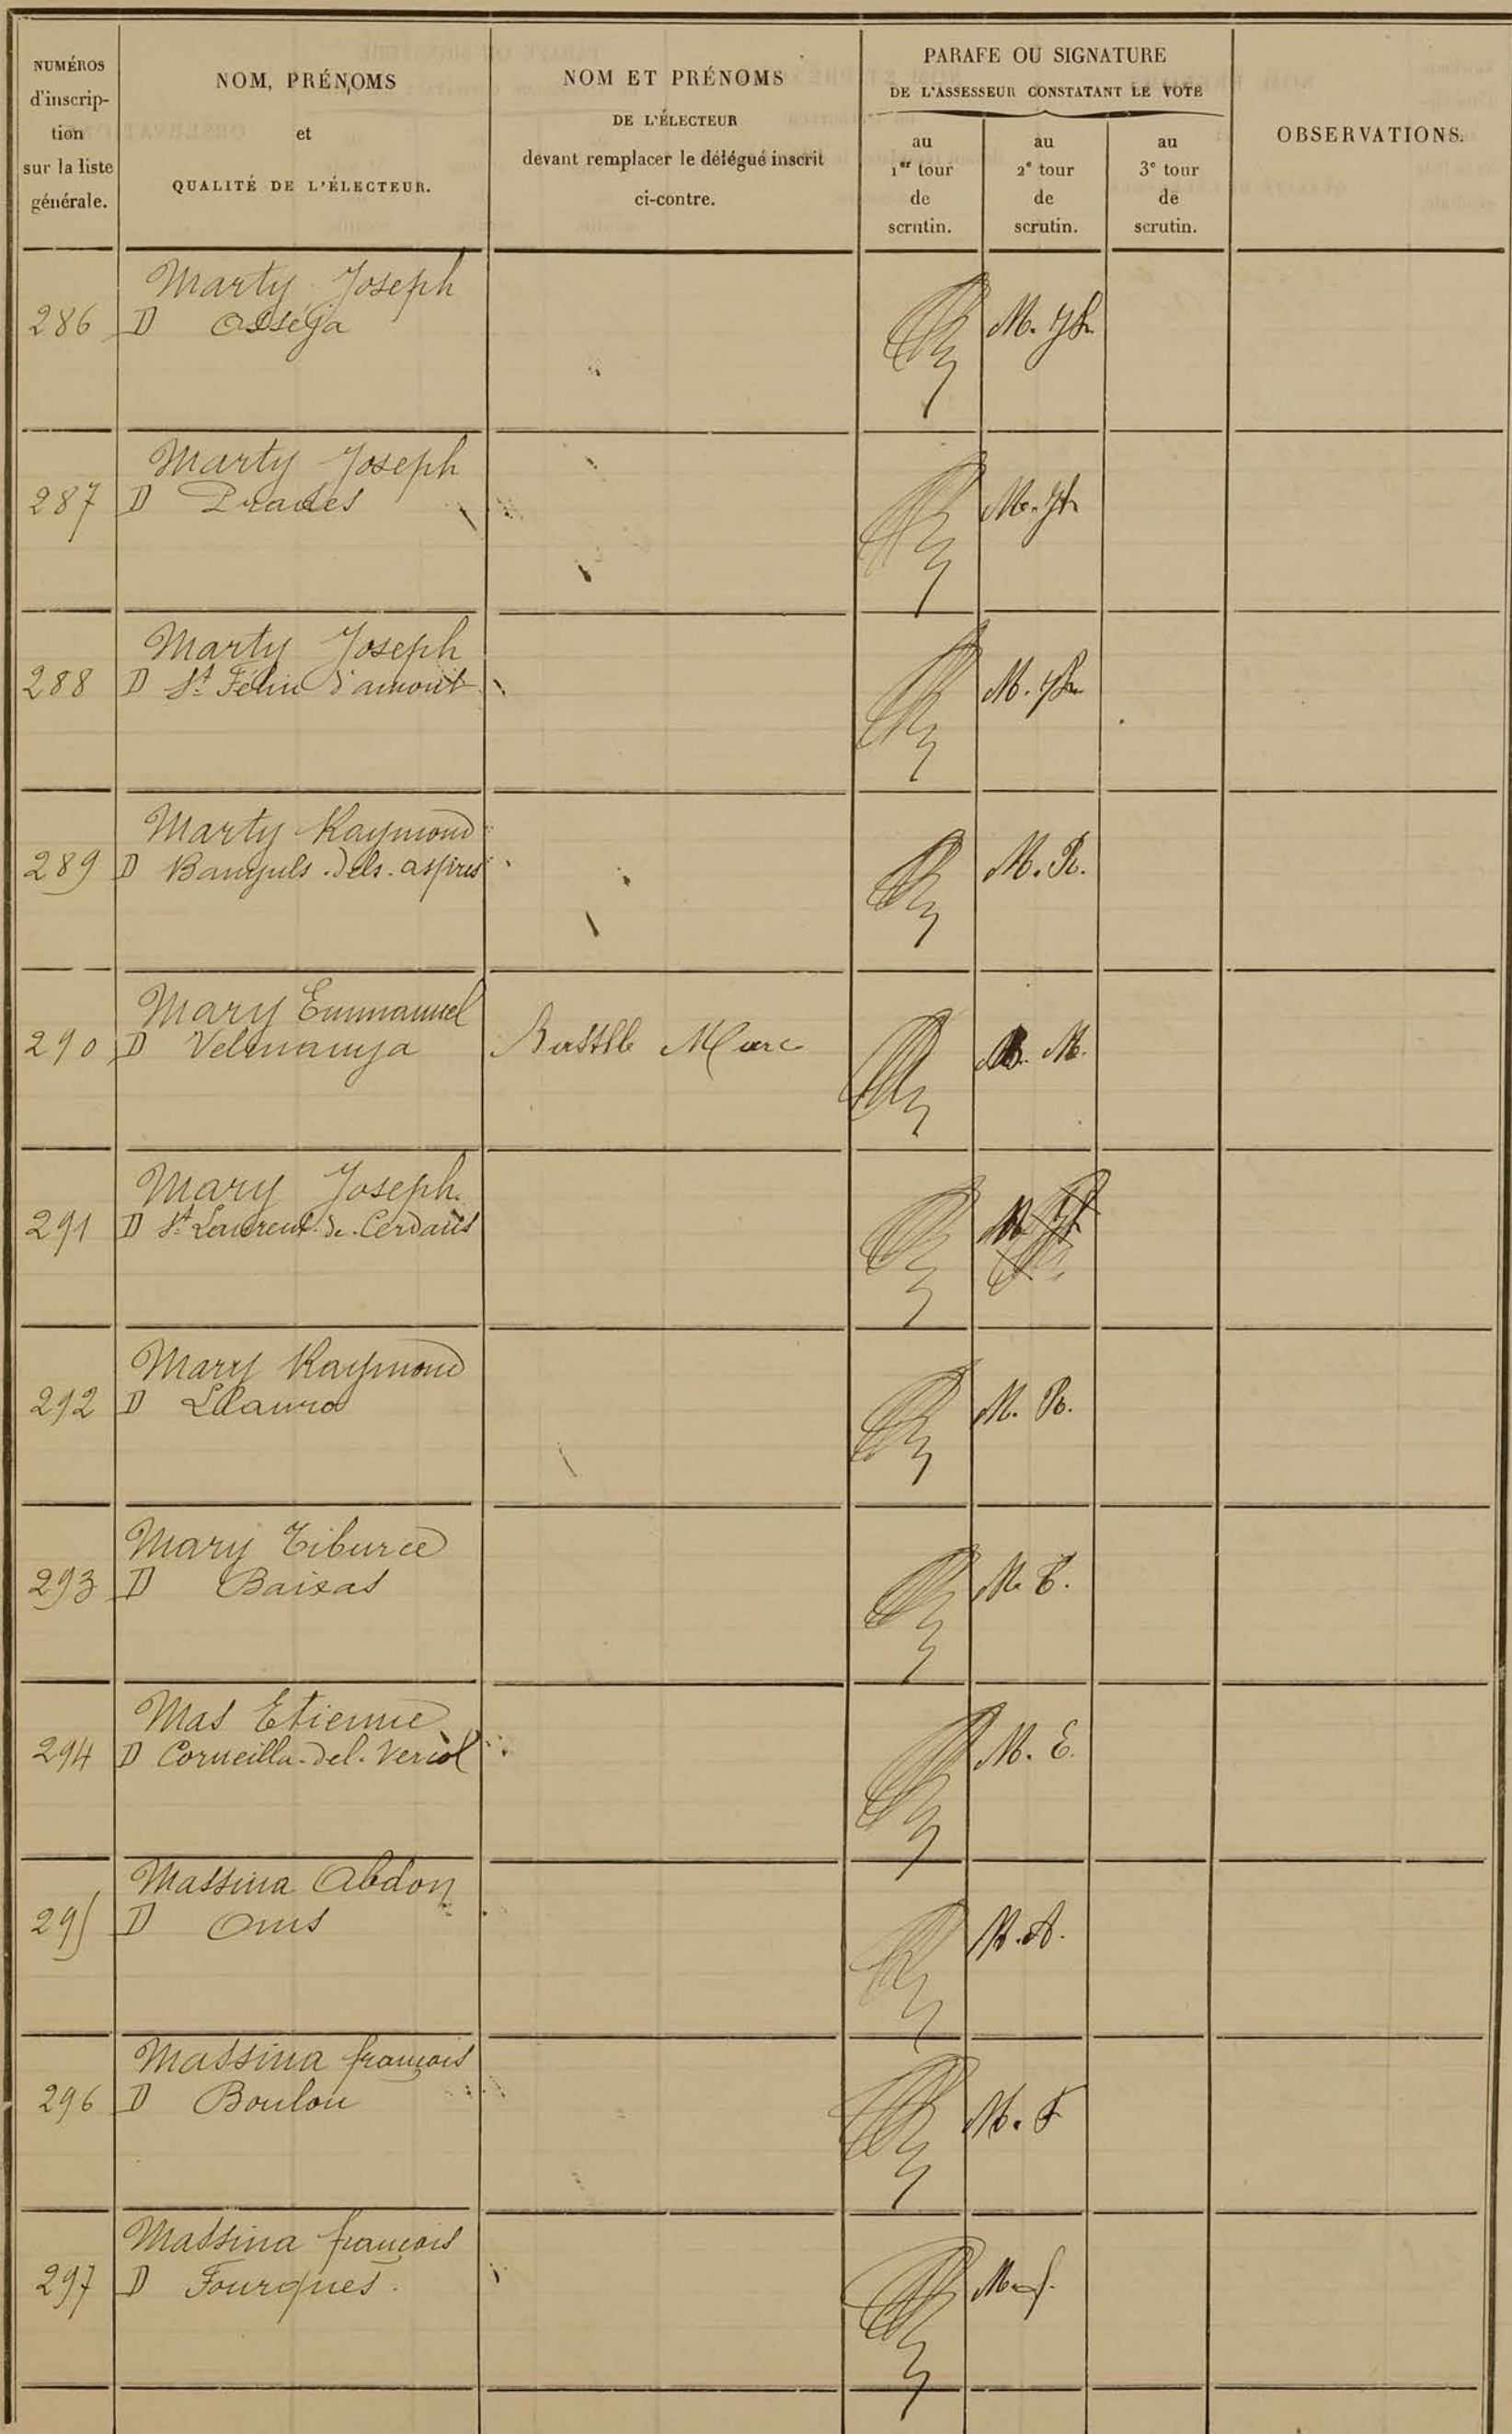 NUMÉROS
d'inscrip-
tion
sur la liste
générale.
NOM, PRÉNOMS
et
QUALITÉ DE L'ÉLECTEUR.
NOM ET PRÉNOMS
DE L'ÉLECTEUR
devant remplacer le délégué inscrit
ci-contre.
PARAFE OU SIGNATURE
DE L'ASSESSEUR CONSTATANT LE VOTE
au
1er tour
de
scrutin.
au
2e tour
de
scrutin.
au
3e tour
de
scrutin.
OBSERVATIONS.
Marty Joseph
286 D Osséja M. Jh
Marty Joseph
287 D Prades M. Jh
Marty Joseph
288 D St Féliu d'amont M. Jh
Marty Raymond
289 D Banyuls. dels. aspres M. R.
Mary Emmanuel
290 D Velmanya Marc B. M.
Mary Joseph
291 D St Laurent. de. Cerdans M. Jh
Mary Raymond
292 D Llauro M. R.
Mary Tiburce
293 D Baixas M. T.
Mas Etienne
294 D Corneilla. del. Vercol M. E.
Massina Abdon
295 D Oms M. A.
Massina françois
296 D Boulou M. F
Massina françois
297 D Fourques. M. f.